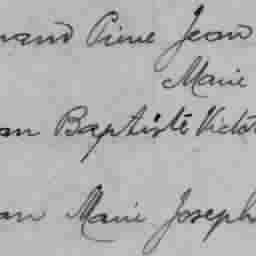 nand Pierre Jean
Marie
an Baptiste Victo
an Marie Joseph